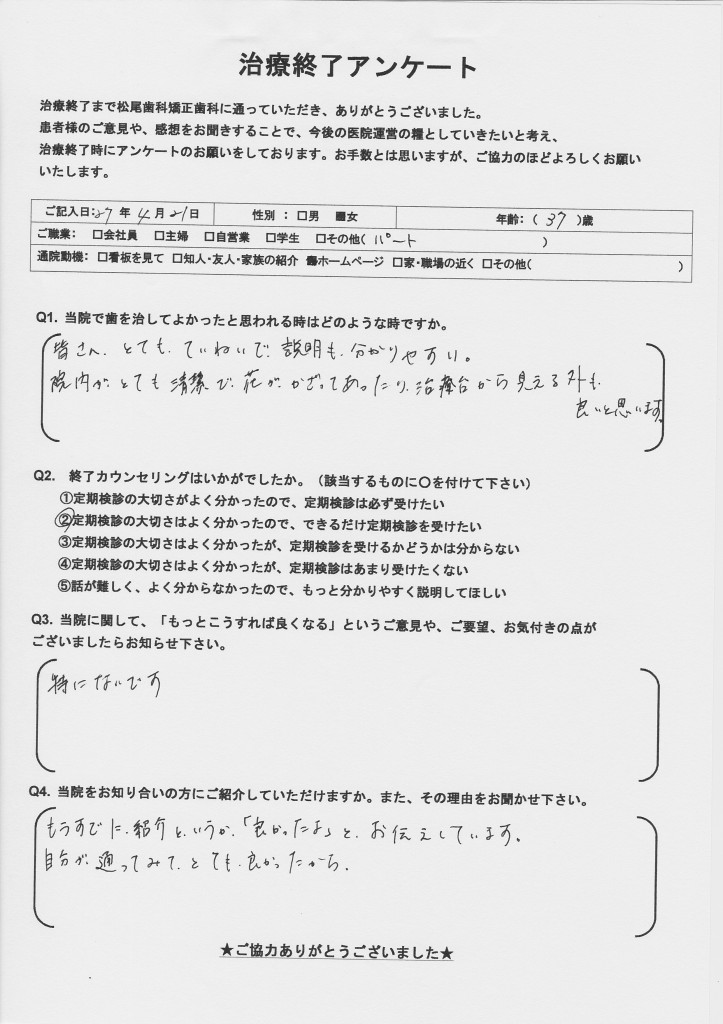 治療終了アンケート
治療終了まで松尾歯科矯正歯科に通っていただき、ありがとうございました。
患者様のご意見や、感想をお聞きすることで、今後の医院運営の糧としていきたいと考え、
治療終了時にアンケートのお願いをしております。お手数とは思いますが、ご協力のほどよろしくお願い
いたします。
ご記入日:27 年 4 月 21 日 性別 : □男 ■女 年齢:( 37 )歳
ご職業: □会社員 □主婦 □自営業 □学生 □その他( パート )
通院動機: □看板を見て □知人・友人・家族の紹介 ■ホームページ □家・職場の近く □その他( )
Q1. 当院で歯を治してよかったと思われる時はどのような時ですか。
皆さん、とても、ていねいで、説明も、分かりやすい。
院内が、とても清潔で、花が、かざってあったり、治療台から見える外も、
良いと思います。
Q2. 終了カウンセリングはいかがでしたか。(該当するものに○を付けて下さい)
①定期検診の大切さがよく分かったので、定期検診は必ず受けたい
②定期検診の大切さはよく分かったので、できるだけ定期検診を受けたい
③定期検診の大切さはよく分かったが、定期検診を受けるかどうかは分からない
④定期検診の大切さはよく分かったが、定期検診はあまり受けたくない
⑤話が難しく、よく分からなかったので、もっと分かりやすく説明してほしい
Q3. 当院に関して、「もっとこうすれば良くなる」というご意見や、ご要望、お気付きの点が
ございましたらお知らせ下さい。
特にないです
Q4. 当院をお知り合いの方にご紹介していただけますか。また、その理由をお聞かせ下さい。
もうすでに、紹介というか、「良かったよ」と、お伝えしています。
自分が、通ってみて、とても、良かったから、
★ご協力ありがとうございました★